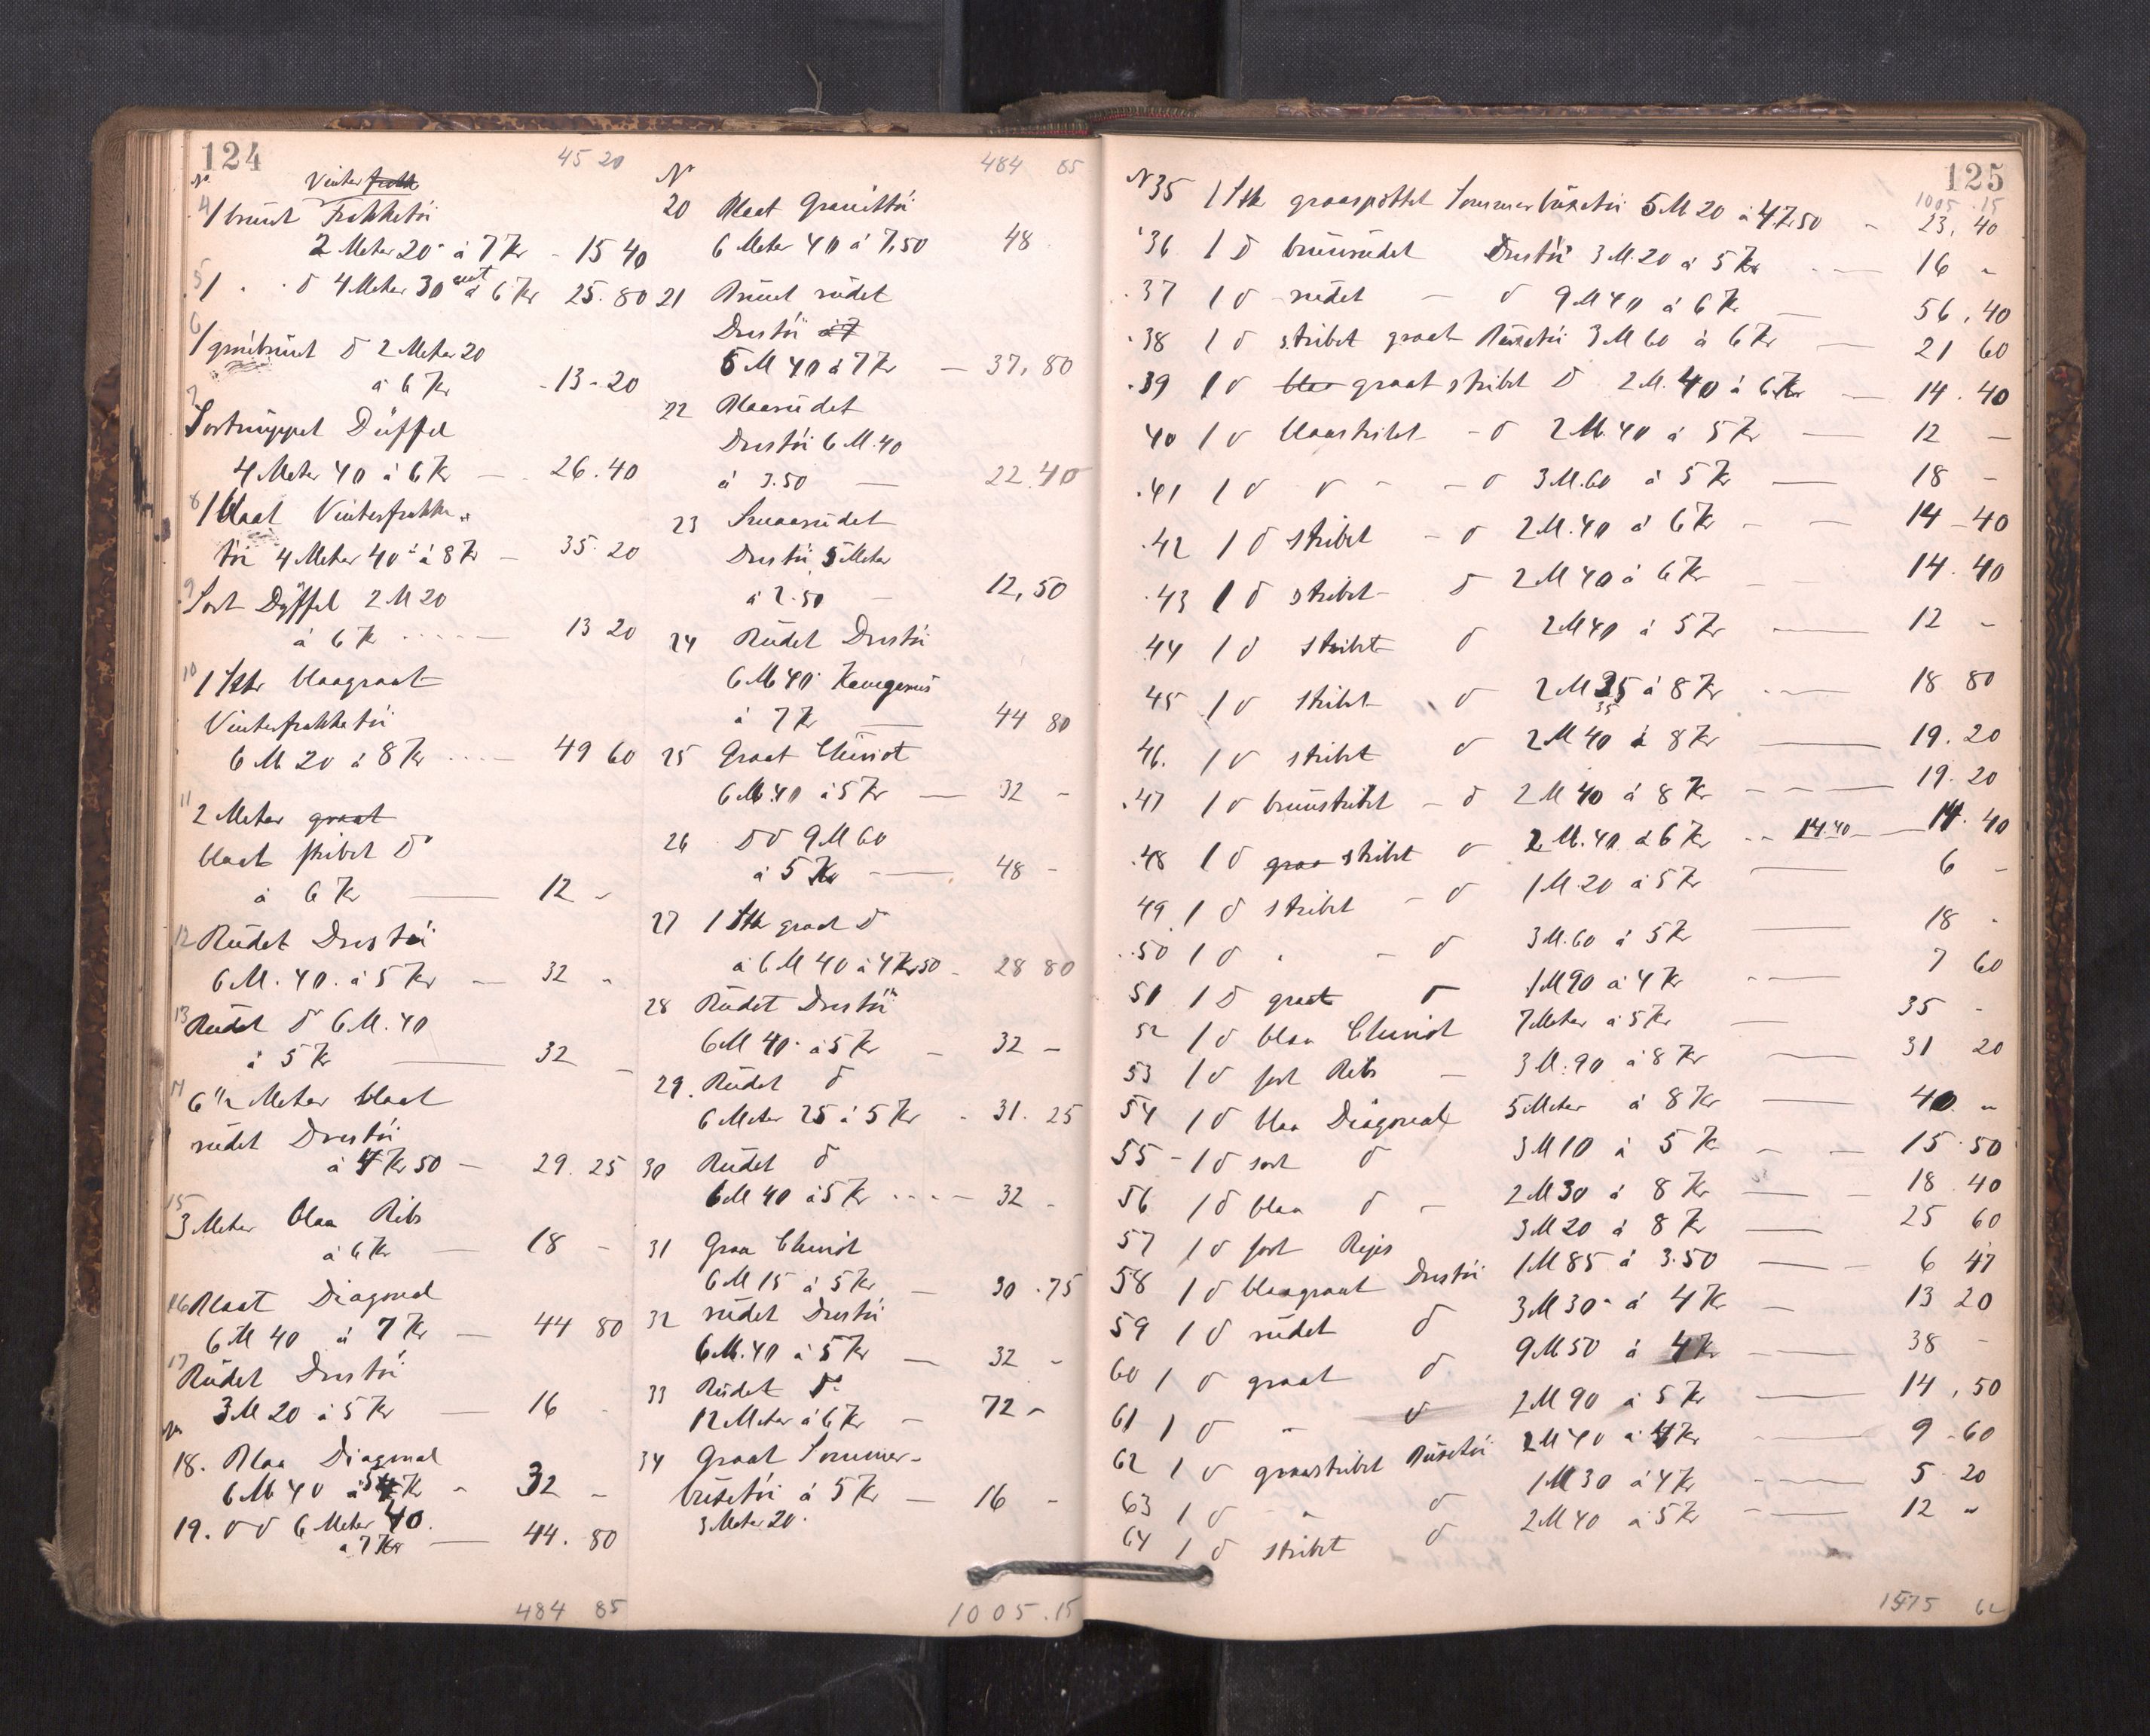 124
45 20
No
Vinter frakke
4 1 brunt Frakketöi
2 Meter 20 à 7 Kr - 15 40
5 1 " " d 4 Meter 30 cmt à 6 Kr 25.80
6 1 grönbrunt d 2 Meter 20
à 6 Kr - 13-20
7 Sortnuppet Düffel
4 Meter 40 à 6 Kr — 26.40
8 1 blaat Vinterfrakke-
töi 4 Meter 40 à 8 Kr — 35.20
9 Sort Düffel 2 M 20
à 6 Kr ---- 13 20
10 1 Stk blaagraat
Vinterfrakketöi
6 M 20 à 8 Kr ---- 49 60
11 2 Meter graat
blaat stribet Do
à 6 Kr — 12 -
12 Rüdet Drestöi
6 M. 40. à 5 Kr — 32 "
13 Rüdet d 6 M. 40
à 5 Kr — 32 -
14 6 1/2 Meter blaat
rüdet Drestöi
à 4 Kr 50 — 29.25
15 3 Meter blaa Ribs
à 6 Kr — 18 -
16 Blaat Diagonal
6 M 40 à 7 Kr — 44 80
17 Rüdet Drestöi
3 M 20 à 5 Kr — 16 -
No
18. Blaa Diagonal
6 M 40 à 5 Kr - 32 -
19. d d 6 Meter 40.
à 7 Kr — 44. 80
484 85
No
484 85
20 Blaat Granittöi
6 Meter 40 à 7,50 48
21 Brunt rüdet
Drestöi à 7
5 M 40 à 7 Kr — 37,80
22 Blaarüdet
Drestöi 6 M. 40
à 3.50 — 22.40
23 Smaarüdet
Drestöi 5 Meter
à 2.50 — 12,50
24 Rüdet Drestöi
6 M 40
à 7 Kr — 44 80
25 Graat Cheviot
6 M. 40 à 5 Kr — 32 -
26 D d 9 M 60
à 5 Kr — 48 -
27 1 Stk graat d
à 6 M 40 à 4 Kr 50 - 28 80
28 Rüdet Drestöi
6 M 40 à 5 Kr — 32 -
29. Rüdet d
6 Meter 25 à 5 Kr - 31. 25
30 Rüdet d
6 M 40 à 5 Kr ---- 32 -
31 Graa Cheviot
6 M 15 à 5 Kr — 30.75
32 rüdet Drestöi
6 M. 40 à 5 Kr — 32 -
33 Rüdet do
12 Meter à 6 Kr — 72 -
34 Graat Sommer-
büxetöi à 5 Kr — 16 -
3 Meter 20.
1005.15
125
1005.15
N 35 1 Stk graaspöttet Sommerbüxetöi 5 M 20 à 4 Kr 50 - 23,40
36 1 D brunrüdet Drestöi 3 M. 20 à 5 Kr — 16 -
37 1 d rüdet - d 9 M 40 à 6 Kr — 56,40
38 1 d stribet graat Büxetöi 3 M 60 à 6 Kr — 21 60
39 1 d blaa graat stribet D 2 M. 40 à 6 Kr — 14.40
40 1 d blaastribet - d 2 M. 40 à 5 Kr — 12 -
41 1 d d - - d 3 M. 60 à 5 Kr — 18 -
42 1 d stribet - d 2 M. 40 à 6 Kr - — 14-40
43 1 d stribet d 2 M 40 à 6 Kr - - 14.40
44 1 d stribet d 2 M 40 à 5 Kr — 12 -
45 1 d stribet d 2 M 35 à 8 Kr ---- 18 80
35
46. 1 d stribet d 2 M 40 à 8 Kr — 19.20
47 1 d brunstribet - d 2 M 40 à 8 Kr - - — 19.20
48 1 d graa stribet d 2 M. 40 à 6 Kr -- 14.40 — 14.40
49 1 d stribet - d 1 M. 20 à 5 Kr — 6 -
50 1 d " - d 3 M. 60 à 5 Kr — 18 -
51 1 D graat d 1 M 90 à 4 Kr --- 7 60
52 1 d blaa Cheviot 7 Meter à 5 Kr — 35 -
53 1 d sort Ribs - 3 M. 90 à 8 Kr — 31 20
54 1 d blaa Diagonal 5 Meter à 8 Kr — 40 "
55 - 1 d sort d 3 M 10 à 5 Kr - - 15.50
56 1 d blaa d - 2 M 30 à 8 Kr — 18 40
57 1 d sort Rips 3 M 20 à 8 Kr — 25 60
58 1 d blaagraat Drestöi 1 M 85 à 3.50 — 6 47
59 1 d rüdet d 3 M 30 à 4 Kr — 13 20
60 1 d graat d 9 M 50 à 4 Kr — 38 -
61 1 d " d 2 M 90 à 5 Kr — 14,50
62 1 d graastribet Büxetöi 2 M 40 à 4 Kr — 9-60
63 1 d " d 1 M 30 à 4 Kr — 5.20
64 1 d stribet d 2 M 40 à 5 Kr — 12 "
1575 62